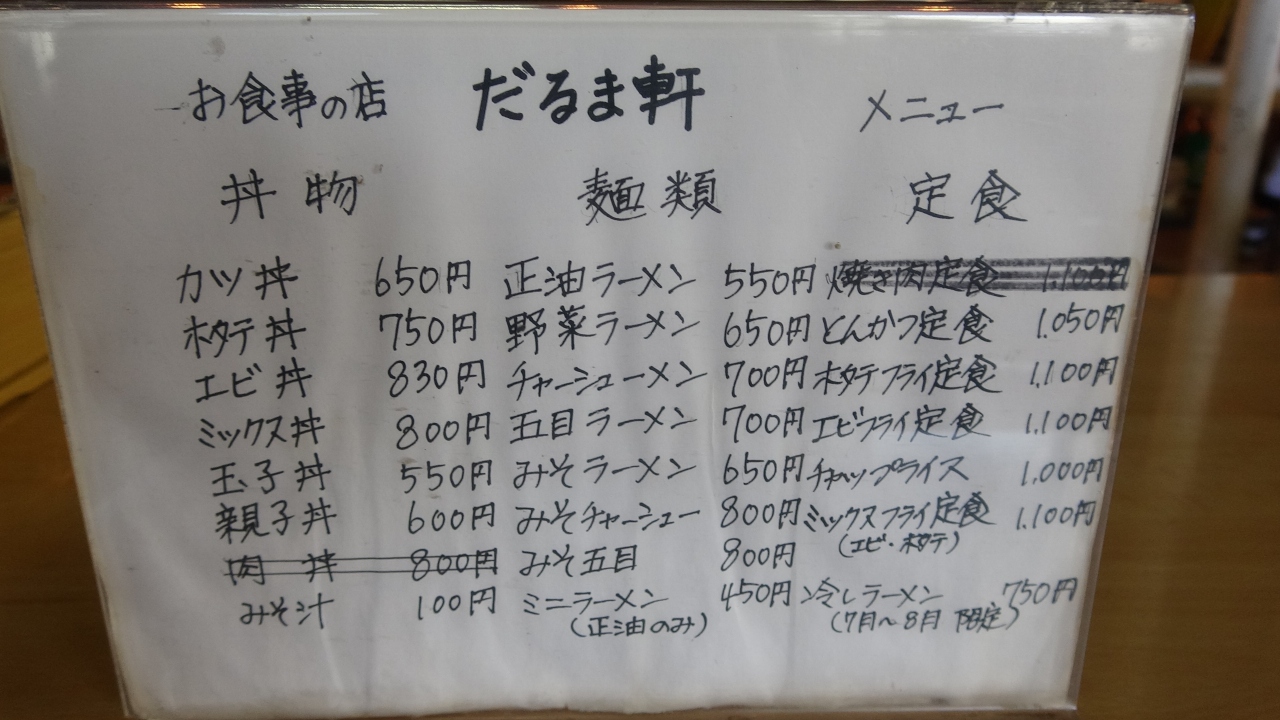 お食事の店 だるま軒 メニュー
丼物
カツ丼 650円
ホタテ丼 750円
エビ丼 830円
ミックス丼 800円
玉子丼 550円
親子丼 600円
肉丼 800円
みそ汁 100円
麺類
正油ラーメン 550円
野菜ラーメン 650円
チャーシューメン 700円
五目ラーメン 700円
みそラーメン 650円
みそチャーシュー 800円
みそ五目 800円
ミニラーメン 450円
(正油のみ)
定食
焼き肉定食 1.100円
とんかつ定食 1.050円
ホタテフライ定食 1.100円
エビフライ定食 1.100円
チャップライス 1.000円
ミックスフライ定食 1.100円
(エビ・ホタテ)
冷しラーメン 750円
(7月〜8月限定)